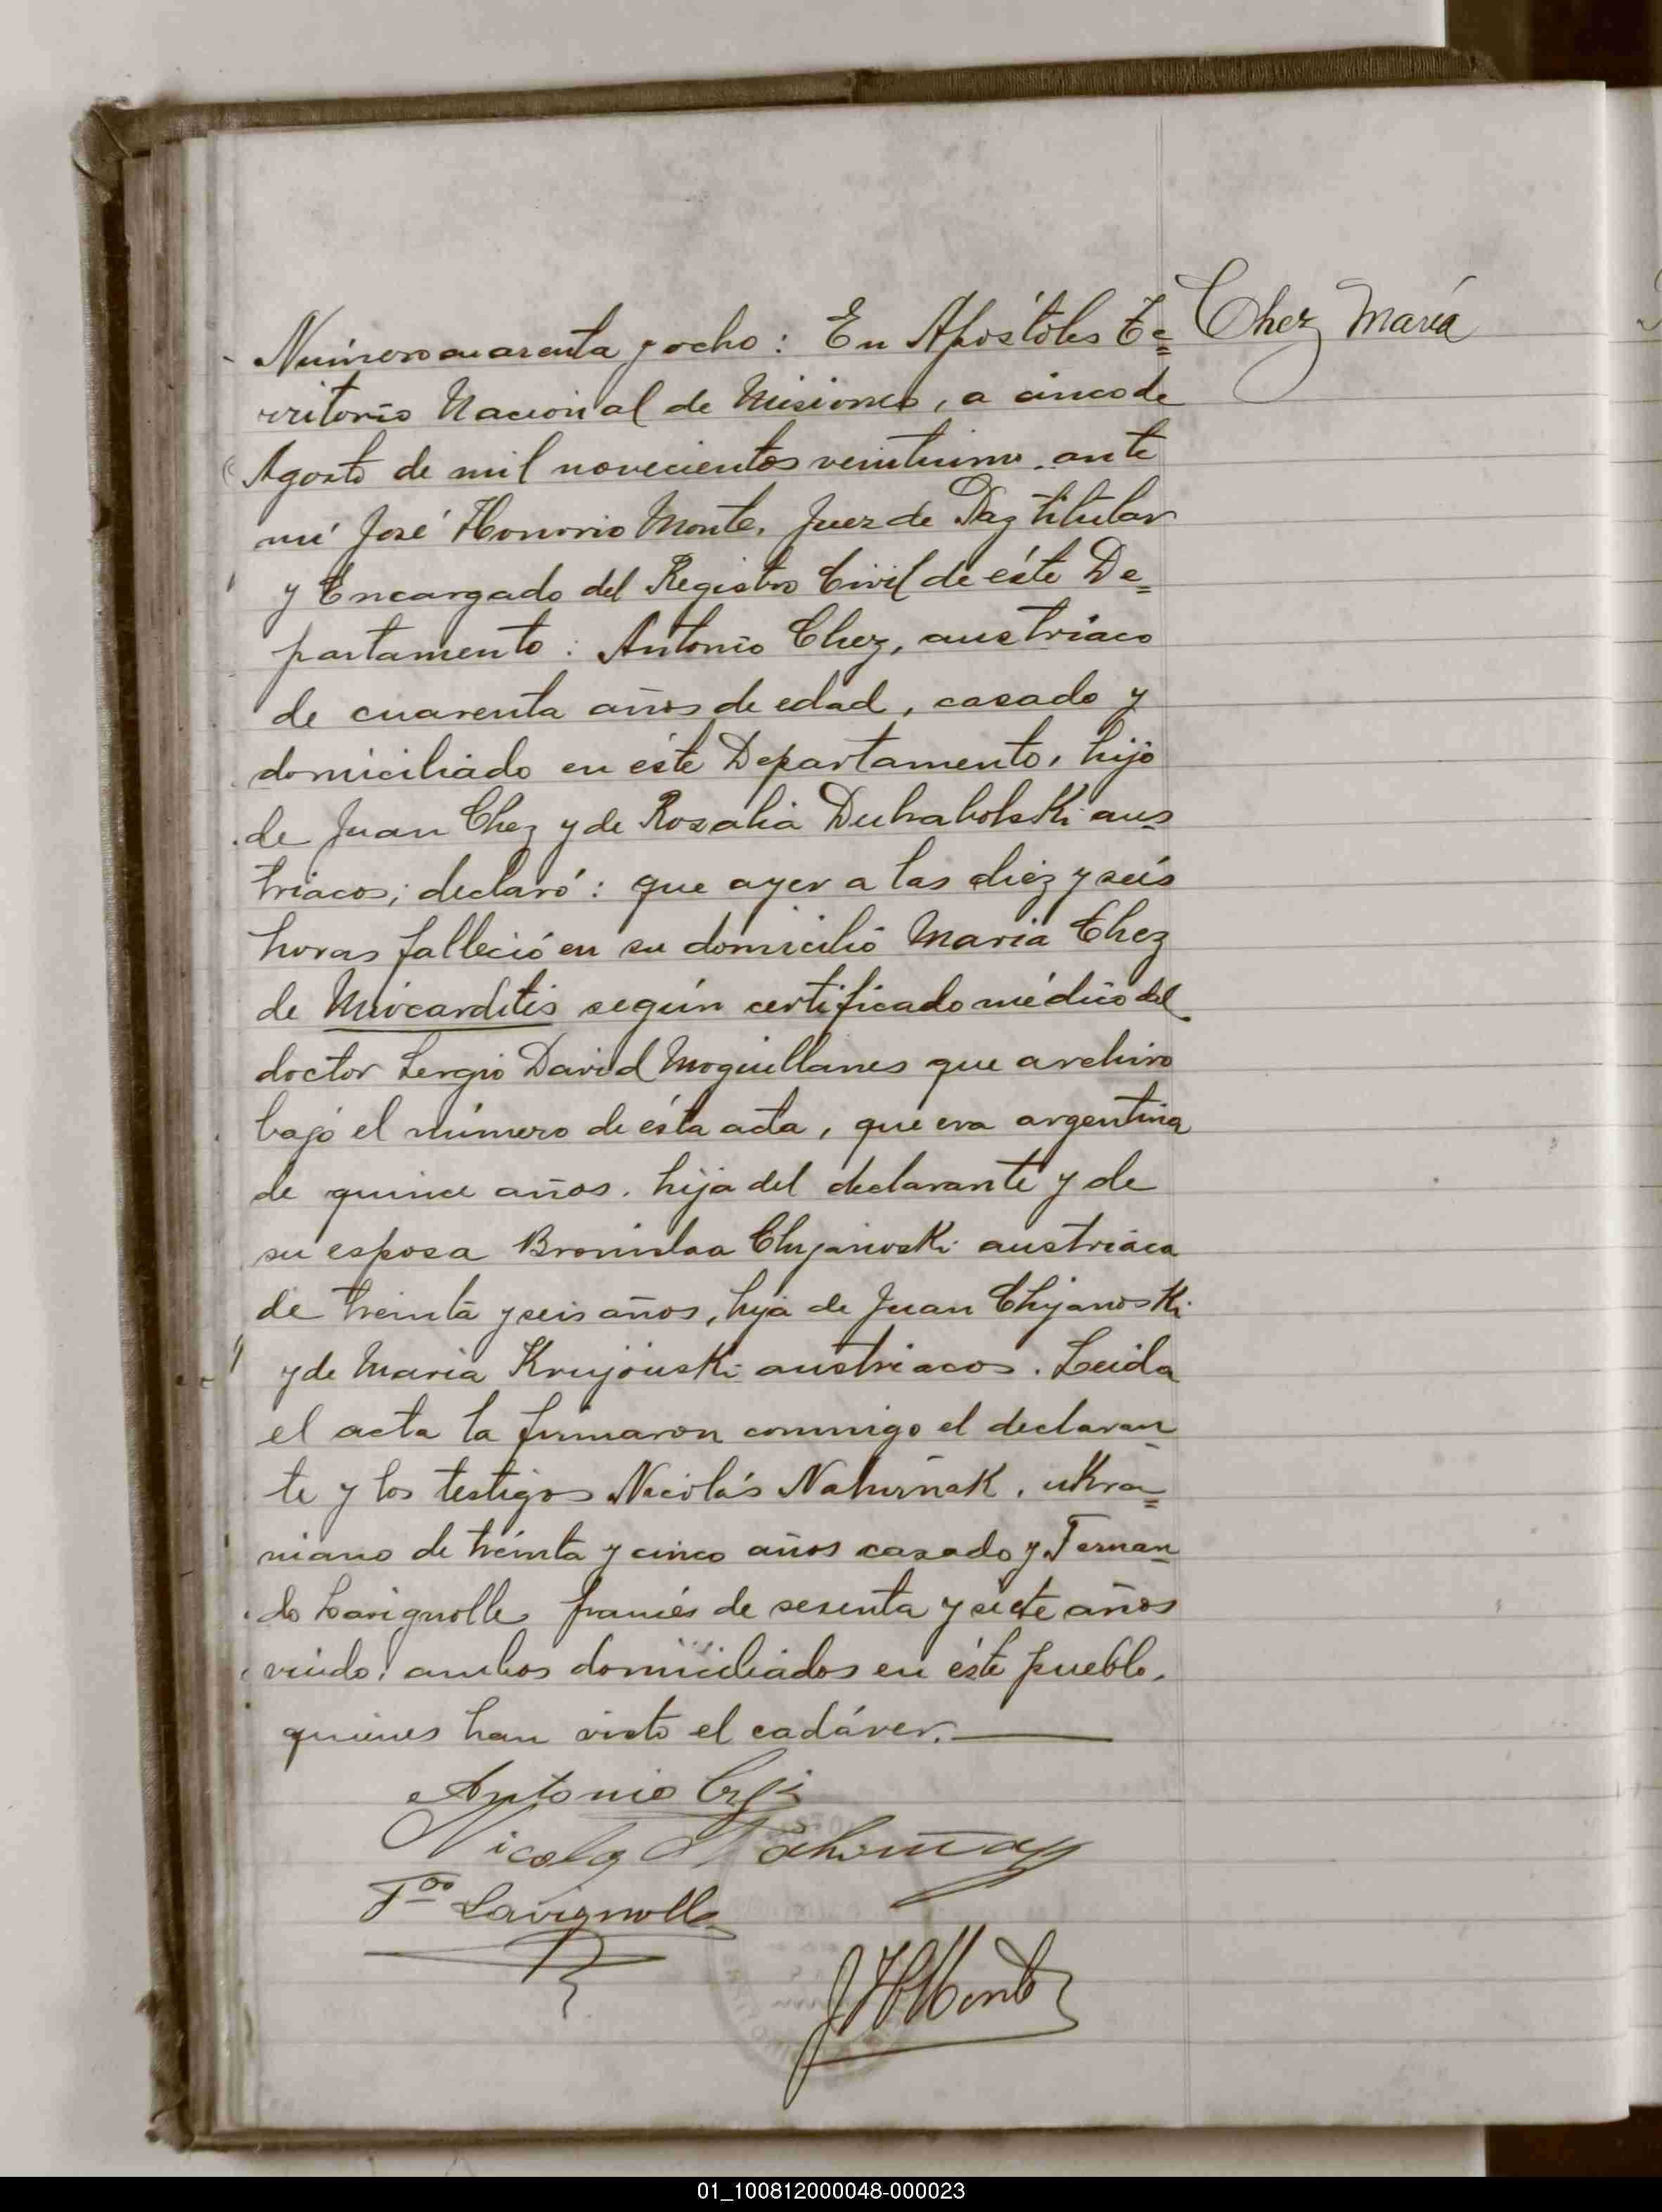 Chez María
Número cuarenta y ocho: En Apóstoles Te=
rritorio Nacional de Misiones, a cinco de
Agosto de mil novecientos veintiuno, ante
mí José Honorio Monte, Juez de Paz titular
y Encargado del Registro Civil de éste De=
partamento: Antonio Chez, austriaco
de cuarenta años de edad, casado y
domiciliado en éste Departamento, hijo
de Juan Chez y de Rosalia aus
triacos; declaró: que ayer a las diez y seis
horas falleció en su domicilio Maria Chez
de Miocarditis según certificado médico del
doctor Sergio David Moguillanes que archivo
bajo el número de ésta acta, que era argentina
de quince años, hija del declarante y de
su esposa Bronislaa Chyjanoski austriaca
de treinta y seis años, hija de Juan Chyjanoski
y de Maria Krujouski austriacos. Leida
el acta la firmaron conmigo el declaran
te y los testigos Nicolás Nahirñak, ukra=
niano de treinta y cinco años casado y Fernan
do Lavignolle francés de sesenta y siete años
viudo; ambos domiciliados en éste pueblo,
quienes han visto el cadáver.
Antonio
Nicola
Fdo Lavignolle
JHMonte
01_100812000048-000023